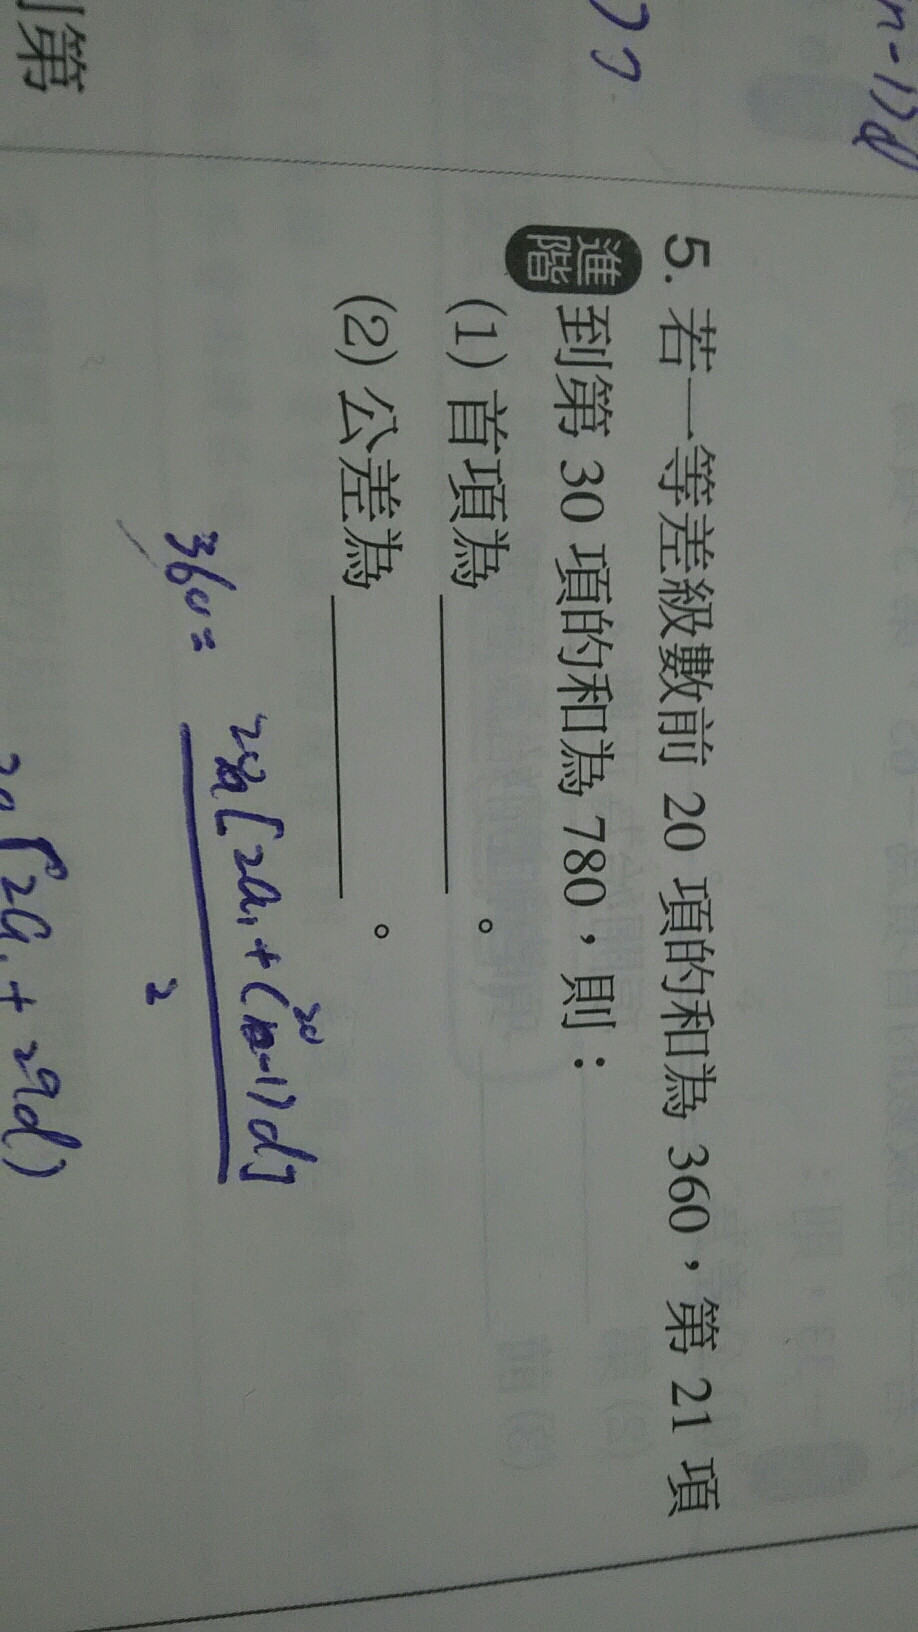 n-1)d
5. 若一等差級數前 20 項的和為 360，第 21 項
進階 到第 30 項的和為 780，則：
(1) 首項為＿＿＿＿。
(2) 公差為＿＿＿＿。
360=
[2a₁+(20-1)d]
2
[2a₁+29d)
第